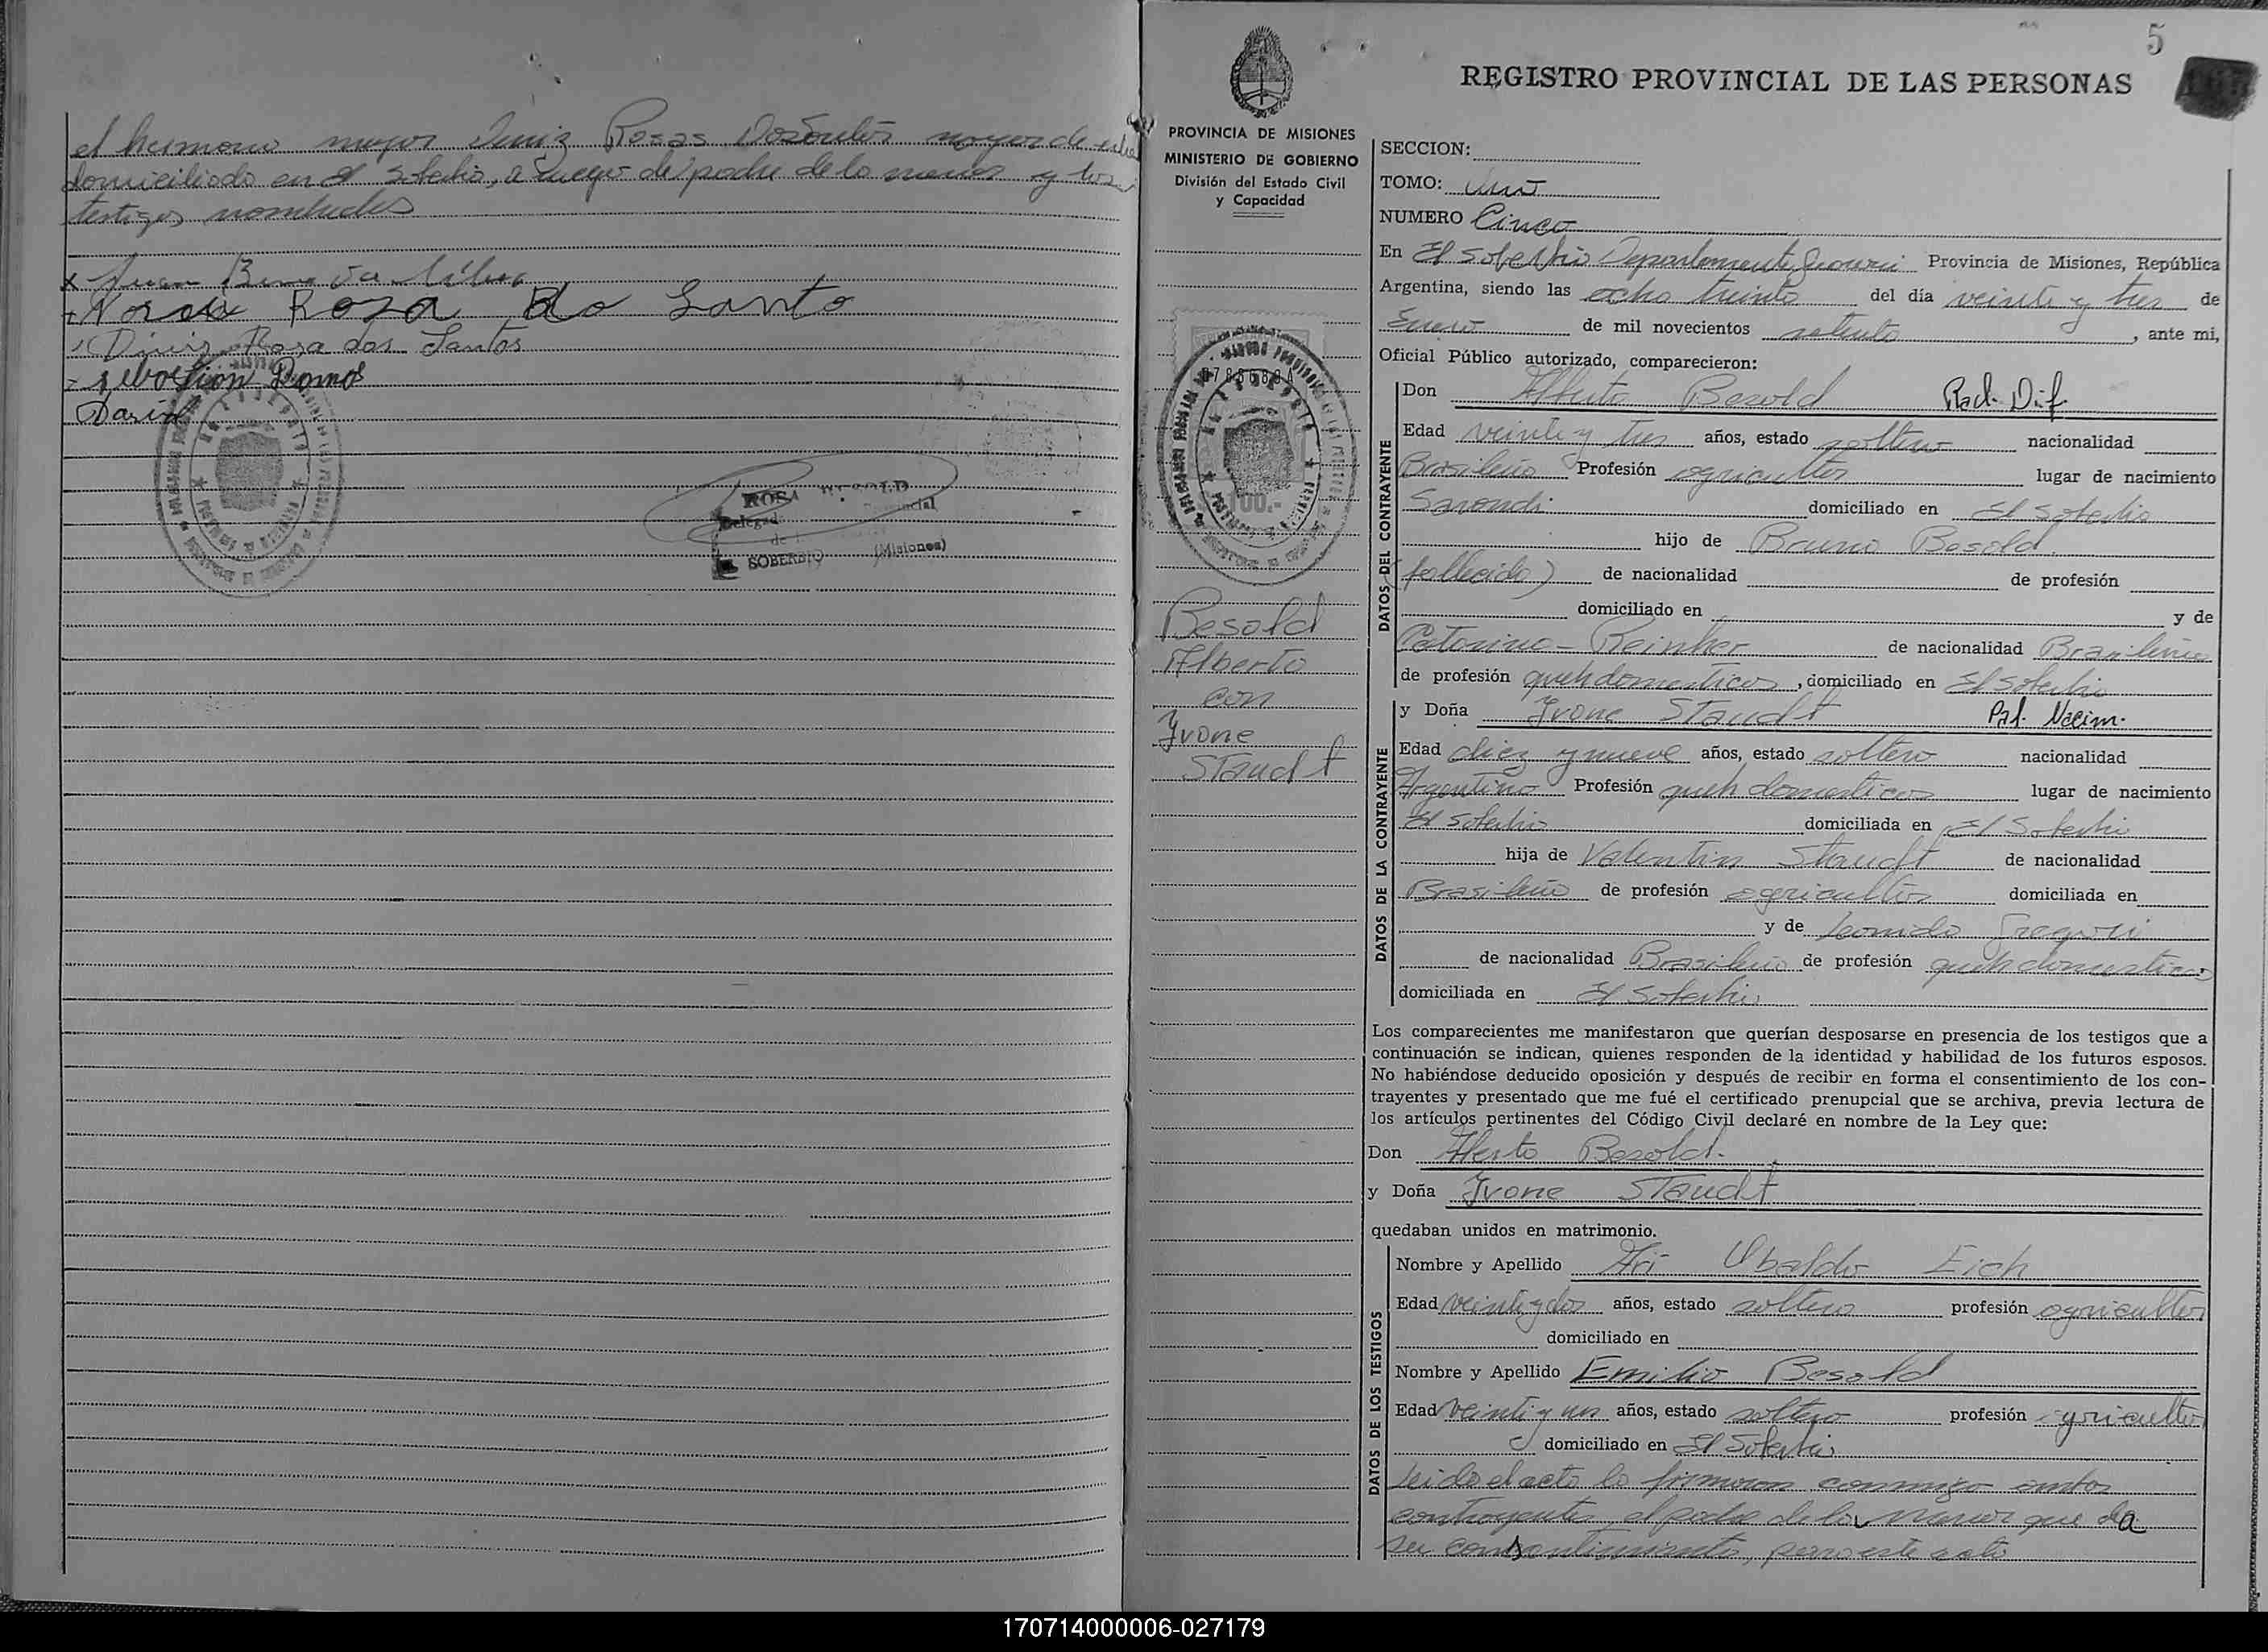 el hermano mayor Diniz Rosas Dosantos mayor de edad
domiciliado en El Soberbio, a ruego del padre de la menor y los
testigos nombrados
x Juan
x Norma Rosa do Santo
Diniz Rosa dos Santos
Sebastion Ramos
Dario
ROSA BESOLD
Delegad
SOBERBIO (Misiones)
5
REGISTRO PROVINCIAL DE LAS PERSONAS
PROVINCIA DE MISIONES
MINISTERIO DE GOBIERNO
División del Estado Civil
y Capacidad
100.-
Besold
Alberto
con
Yvone
Staudt
SECCION:
TOMO: Uno
NUMERO Cinco
En El Soberbio Departamento Guarani Provincia de Misiones, República
Argentina, siendo las ocho treinta del día veinte y tres de
Enero de mil novecientos setenta, ante mi,
Oficial Público autorizado, comparecieron:
DATOS DEL CONTRAYENTE
Don Alberto Besold Rad. Dif.
Edad veinte y tres años, estado soltero nacionalidad
Brasileño Profesión agricultor lugar de nacimiento
Sarandi domiciliado en El Soberbio
hijo de Bruno Besold
(fallecido) de nacionalidad de profesión
domiciliado en y de
Catarina - Reinher de nacionalidad Brasileña
de profesión queh domesticos, domiciliado en El Soberbio
DATOS DE LA CONTRAYENTE
y Doña Yvone Staudt Pal. Nacim.
Edad diez y nueve años, estado soltera nacionalidad
Argentina Profesión queh domesticos lugar de nacimiento
El Soberbio domiciliada en El Soberbio
hija de Valentin Staudt de nacionalidad
Brasileño de profesión agricultor domiciliada en
y de Leonida Gregori
de nacionalidad Brasileña de profesión queh domesticos
domiciliada en El Soberbio
Los comparecientes me manifestaron que querían desposarse en presencia de los testigos que a
continuación se indican, quienes responden de la identidad y habilidad de los futuros esposos.
No habiéndose deducido oposición y después de recibir en forma el consentimiento de los con-
trayentes y presentado que me fué el certificado prenupcial que se archiva, previa lectura de
los artículos pertinentes del Código Civil declaré en nombre de la Ley que:
Don Alberto Besold.
y Doña Yvone Staudt
quedaban unidos en matrimonio.
DATOS DE LOS TESTIGOS
Nombre y Apellido Ari Ubaldo Eich
Edad veinte y dos años, estado soltero profesión agricultor
domiciliado en
Nombre y Apellido Emilio Besold
Edad veinte y un años, estado soltero profesión agricultor
domiciliado en El Soberbio
Leido el acta la firmaron conmigo ambos
contrayentes, el padre de la menor que da
su consentimiento, para este acto
170714000006-027179